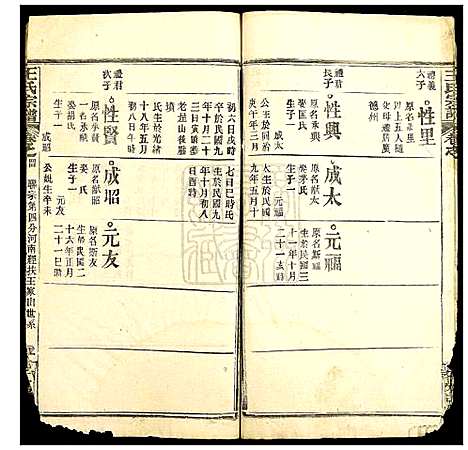 王氏宗譜
禮義
六子
性里
原名承里
冲上五人隨
父母遷居廣
德州
禮君
長子
性興
原名承興
生子一
成太
公生於民國
庚午年三月
初六日戌時
成太
原名獻太
娶李氏
生子一
元福
太生於民國
九年五月十
七日巳時氏
生於民國九
年十月初八
日酉時
元福
原名斯福
生於民國三
十一年十月
二十一亥時
年十月二十
二日寅時葬
老屋山後勝
氏生於光緒
十八年五月
初八日午時
禮君
次子
性賢
原名承賢
娶胡氏
生子一
成昭
公媲生卒未
成昭
原名獻昭
娶氏
生子一
元友
元友
原名斯友
生於民國
十六年正月
二十一巳時
王氏宗譜
卷之四
聯宗第四分河南經扶王家山世系